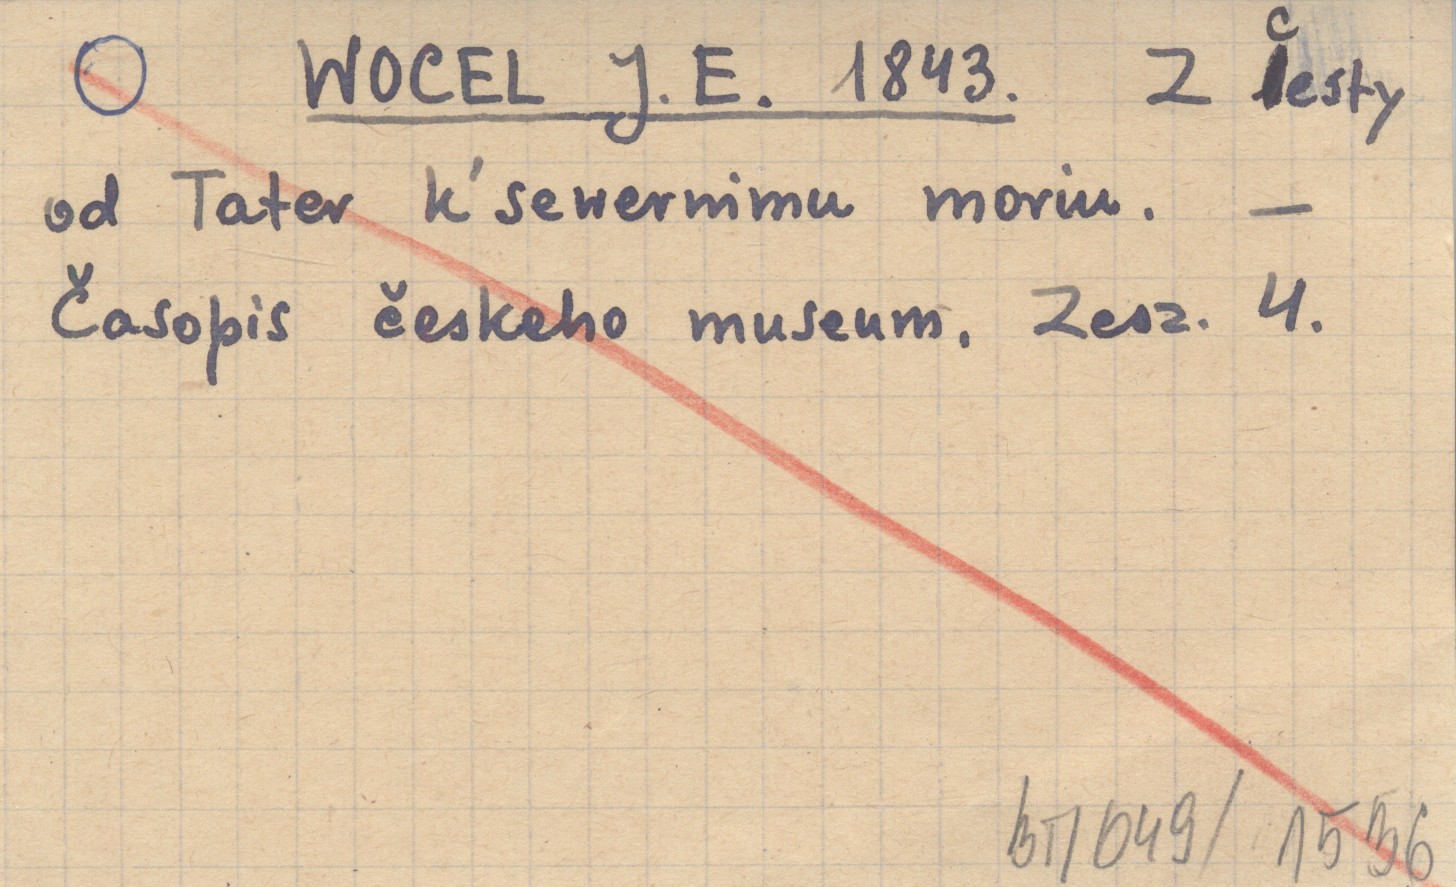 WOCEL J. E. 1843. Z cesty
od Tater k'sewernimu moriu. —
Časopis českeho museum. Zesz. 4.
BT/049/1556